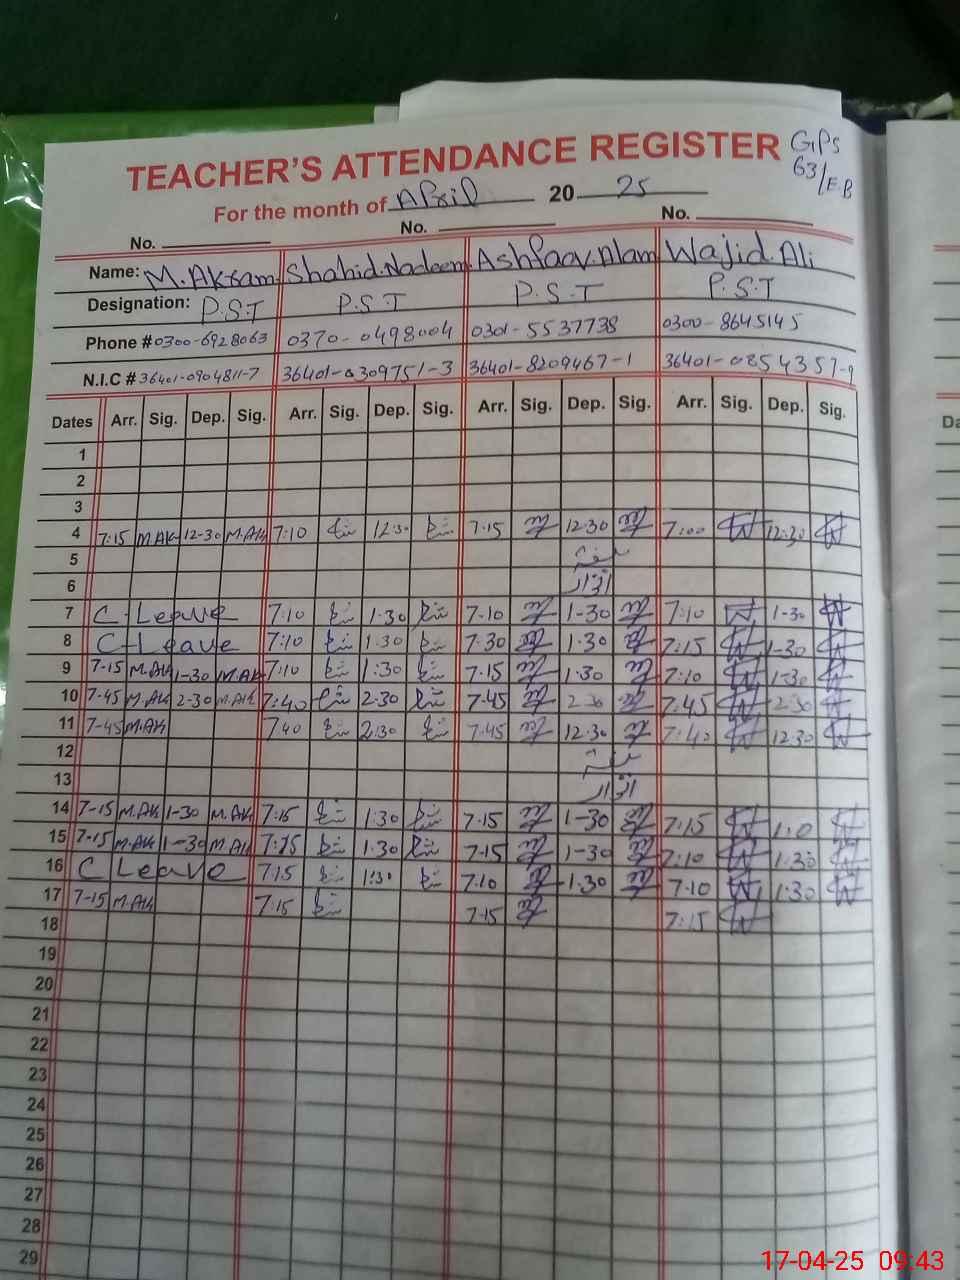 GPS
63/E.B
TEACHER'S ATTENDANCE REGISTER
For the month of April 2025
No. No. No.
Name: M.Akram Shahid.Nadeem Ashfaav.Alam Wajid.Ali
Designation: P.S.T P.S.T P.S.T P.S.T
Phone # 0300-6928063 0370-0498004 0301-5537738 0300-8645145
N.I.C # 36401-0904811-7 36401-0309751-3 36401-8209467-1 36401-0854357-9
Dates Arr. Sig. Dep. Sig. Arr. Sig. Dep. Sig. Arr. Sig. Dep. Sig. Arr. Sig. Dep. Sig.
1
2
3
4 7:15 M.AK 12-30 M.AK 7:10 12:30 7-15 12-30 7:00 12:30
5 ہفتہ
6 اتوار
7 C-Leave 7:10 1-30 7-10 1-30 7:10 1-30
8 C-Leave 7:10 1:30 7-30 1-30 7:15 1-30
9 7-15 M.AK 1-30 M.AK 7:10 1:30 7-15 1:30 7:10 1-30
10 7-45 M.AK 2-30 M.AK 7:40 2-30 7-45 2-30 7:45 2-30
11 7-45 M.AK 7:40 2:30 7-45 12:30 7:40 12.30
12 ہفتہ
13 اتوار
14 7-15 M.AK 1-30 M.AK 7:15 1:30 7-15 1-30 7:15
15 7-15 M.AK 1-30 M.AK 7:15 1:30 7-15 1-30 7:10 1:30
16 C Leave 7:15 1:30 7:10 1.30 7-10 1:30
17 7-15 M.AK 7:15 7-15 7:15
18
19
20
21
22
23
24
25
26
27
28
29
Da
17-04-25 09:43